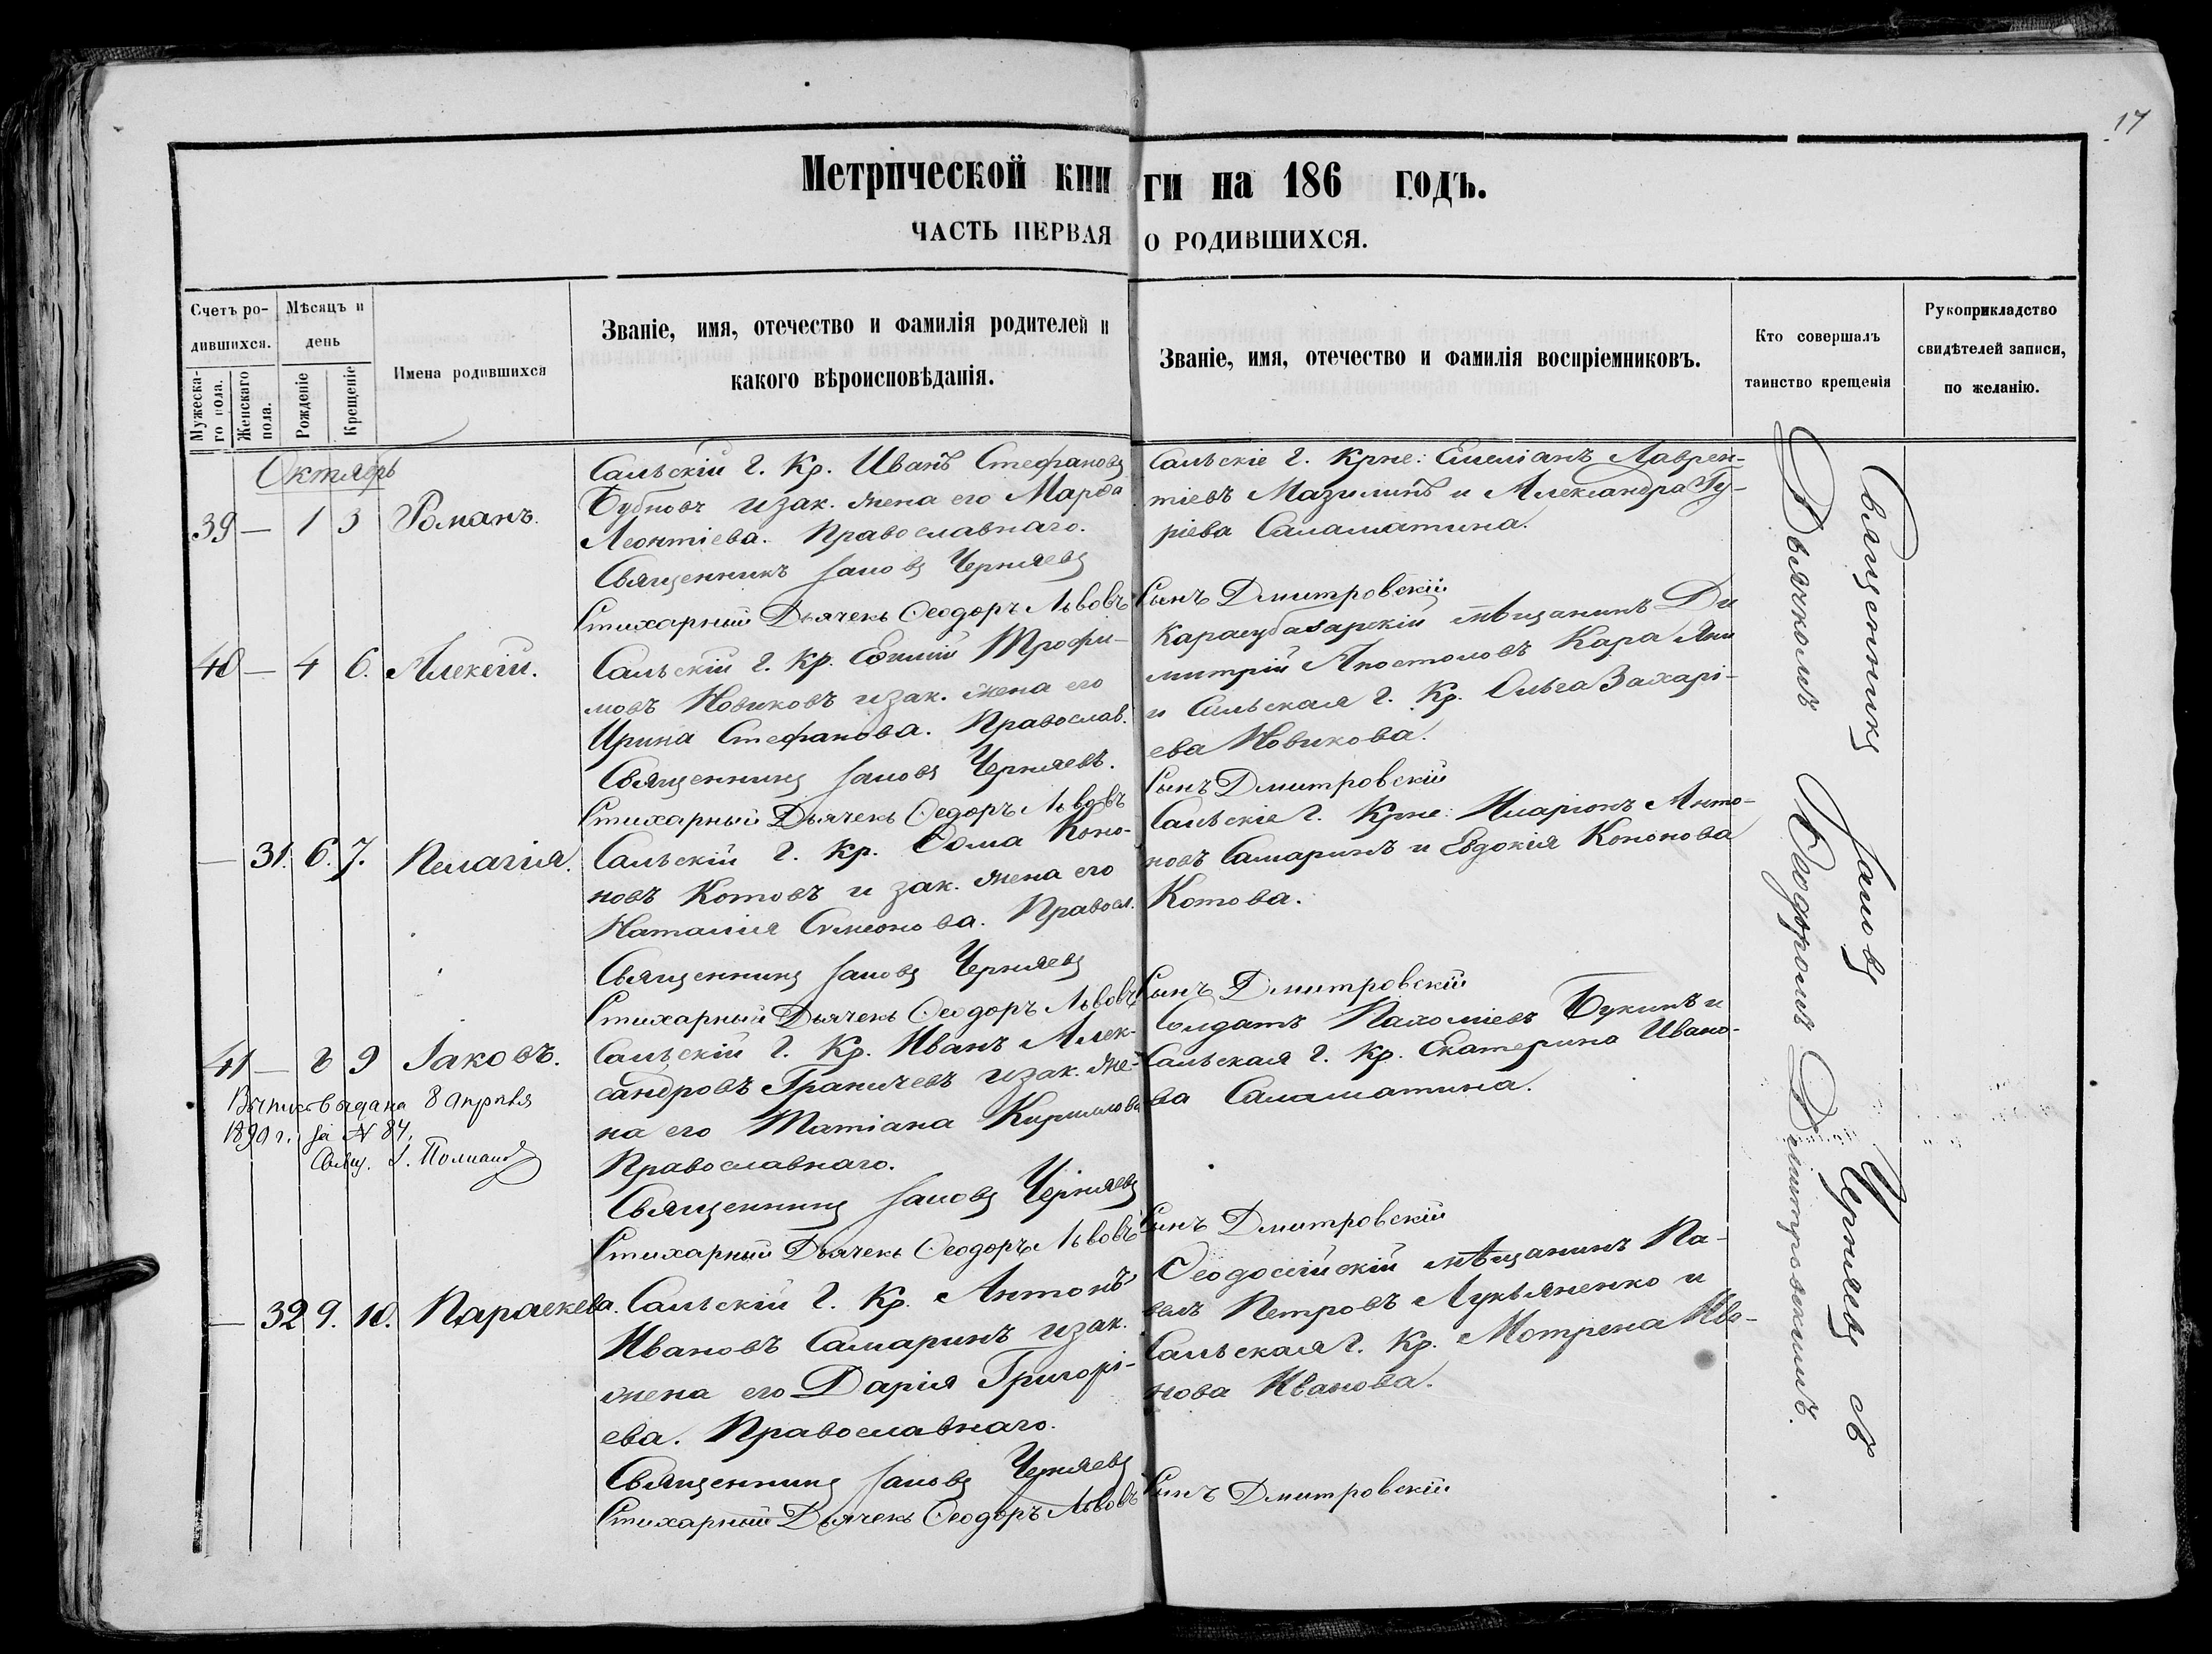 17
Метрической кни ги на 186 годъ.
ЧАСТЬ ПЕРВАЯ О РОДИВШИХСЯ.
Счетъ ро-
дившихся.
Мужеска-
го пола.
Женскаго
пола.
Мѣсяцъ и
день
Рожденіе
Крещеніе
Имена родившихся
Званіе, имя, отечество и фамилія родителей и
какого вѣроисповѣданія.
Званіе, имя, отечество и фамилія воспріемниковъ.
Кто совершалъ
таинство крещенія
Рукоприкладство
свидѣтелей записи,
по желанію.
Октябрь
39 — 1 3 Романъ.
Сальскій г. Кр. Иванъ Стефановъ
Бубновъ и зак. жена его Марѳа
Леонтіева. Православнаго.
Священникъ Іаковъ Черняевъ
Стихарный Дьячекъ Ѳеодоръ Львовъ Сынъ Дмитровскій
Сальскіе г. Крне: Емеліанъ Лаврен-
тіевъ Мазилинъ и Александра Гу-
ріева Саламатина.
40 — 4 6. Алексій.
Сальскій г. Кр. Евѳимій Трофи-
мовъ Новиковъ и зак. жена его
Ирина Стефанова. Православ.
Священникъ Іаковъ Черняевъ.
Стихарный Дьячекъ Ѳедоръ Львовъ Сынъ Дмитровскій
Карасубазарскій мѣщанинъ Ди
митрій Апостоловъ Кара Яни
и Сальская г. Кр. Ольга Захарі-
ева Новикова.
— 31. 6. 7. Пелагія.
Сальскій г. Кр. Ѳома Коно-
новъ Котовъ и зак. жена его
Наталія Симеонова. Правосл.
Священникъ Іаковъ Черняевъ
Стихарный Дьячекъ Ѳеодоръ Львовъ Сынъ Дмитровскій
Сальскіе г. Крне: Иларіонъ Анто-
новъ Самаринъ и Евдокія Кононова
Котова.
41 — 8 9 Іаковъ.
Выпись выдана 8 апрѣля
1890 г. за № 84.
Свящ. І.
Сальскій г. Кр. Иванъ Алек-
сандровъ Граничевъ и зак. же-
на его Татіана Кириллова
Православнаго.
Священникъ Іаковъ Черняевъ
Стихарный Дьячекъ Ѳеодоръ Львовъ Сынъ Дмитровскій
Солдатъ Пахоміевъ Букинъ и
Сальская г. Кр. Екатерина Ивано-
ва Саламатина.
— 32 9. 10. Параскева.
Сальскій г. Кр. Антонъ
Ивановъ Самаринъ и зак.
жена его Дарія Григорі-
ева. Православнаго.
Священникъ Іаковъ Черняевъ
Стихарный Дьячекъ Ѳеодоръ Львовъ Сынъ Дмитровскій
Ѳеодосійскій мѣщанинъ Па-
велъ Петровъ Лукьяненко и
Сальская г. Кр. Мотрена Ива-
нова Иванова.
Священникъ Іаковъ Черняевъ съ
Дьячкомъ Ѳеодоромъ Дмитровскимъ.